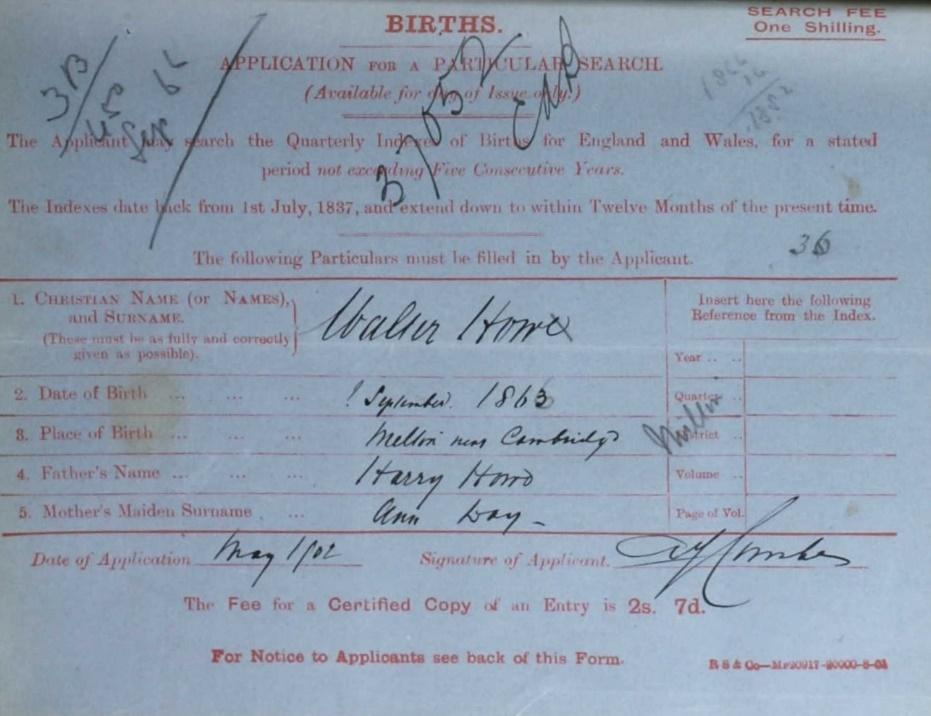 BIRTHS.
SEARCH FEE
One Shilling.
APPLICATION FOR A PARTICULAR SEARCH.
(Available for day of Issue only.)
3B
450
Sep 66
37052
1866
16
1882
The Applicant may search the Quarterly Indexes of Births for England and Wales, for a stated
period not exceeding Five Consecutive Years.
The Indexes date back from 1st July, 1837, and extend down to within Twelve Months of the present time.
36
The following Particulars must be filled in by the Applicant.
1. CHRISTIAN NAME (OR NAMES), and SURNAME.
(These must be as fully and correctly given as possible).
Walter Howe
Insert here the following
Reference from the Index.
Year .. ..
2. Date of Birth ... ... ... September. 1863
Quarter ..
3. Place of Birth ... ... ... near Cambridge
District ..
4. Father's Name ... ... ... Harry Howe
Volume ..
5. Mother's Maiden Surname ... Ann Day -
Page of Vol.
Date of Application May 1902 Signature of Applicant.
The Fee for a Certified Copy of an Entry is 2s. 7d.
For Notice to Applicants see back of this Form.
R S & Co